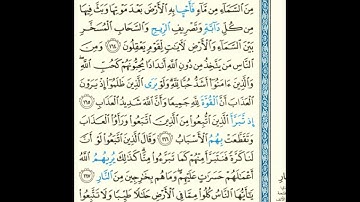 مِنَ ٱلسَّمَآءِ مِن مَّآءٍ فَأَحْيَا بِهِ ٱلْأَرْضَ بَعْدَ مَوْتِهَا وَبَثَّ فِيهَا
مِن كُلِّ دَآبَّةٍ وَتَصْرِيفِ ٱلرِّيَٰحِ وَٱلسَّحَابِ ٱلْمُسَخَّرِ
بَيْنَ ٱلسَّمَآءِ وَٱلْأَرْضِ لَءَايَٰتٍ لِّقَوْمٍ يَعْقِلُونَ ١٦٤ وَمِنَ
ٱلنَّاسِ مَن يَتَّخِذُ مِن دُونِ ٱللَّهِ أَندَادًا يُحِبُّونَهُمْ كَحُبِّ ٱللَّهِ
وَٱلَّذِينَ ءَامَنُوٓا۟ أَشَدُّ حُبًّا لِّلَّهِ وَلَوْ يَرَى ٱلَّذِينَ ظَلَمُوٓا۟ إِذْ يَرَوْنَ
ٱلْعَذَابَ أَنَّ ٱلْقُوَّةَ لِلَّهِ جَمِيعًا وَأَنَّ ٱللَّهَ شَدِيدُ ٱلْعَذَابِ
١٦٥ إِذْ تَبَرَّأَ ٱلَّذِينَ ٱتُّبِعُوا۟ مِنَ ٱلَّذِينَ ٱتَّبَعُوا۟ وَرَأَوُا۟ ٱلْعَذَابَ
وَتَقَطَّعَتْ بِهِمُ ٱلْأَسْبَابُ ١٦٦ وَقَالَ ٱلَّذِينَ ٱتَّبَعُوا۟ لَوْ أَنَّ
لَنَا كَرَّةً فَنَتَبَرَّأَ مِنْهُمْ كَمَا تَبَرَّءُوا۟ مِنَّا كَذَٰلِكَ يُرِيهِمُ ٱللَّهُ
أَعْمَٰلَهُمْ حَسَرَٰتٍ عَلَيْهِمْ وَمَا هُم بِخَٰرِجِينَ مِنَ ٱلنَّارِ ١٦٧
يَٰٓأَيُّهَا ٱلنَّاسُ كُلُوا۟ مِمَّا فِى ٱلْأَرْضِ حَلَٰلًا طَيِّبًا وَلَا تَتَّبِعُوا۟